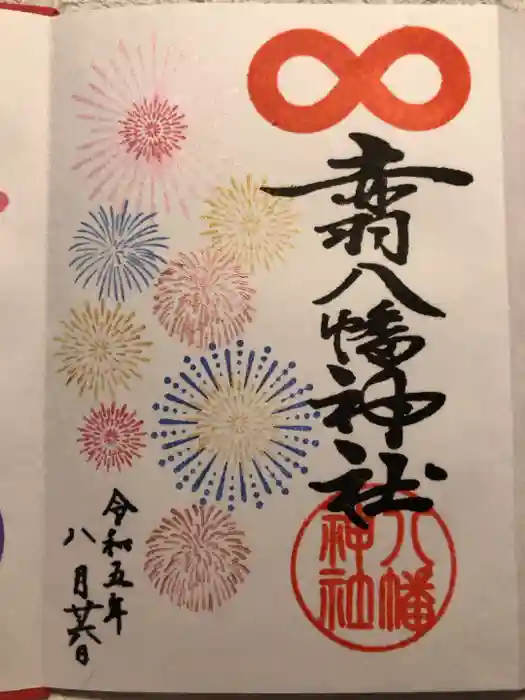 赤羽八幡神社
八幡
神社
令和五年
八月廿六日